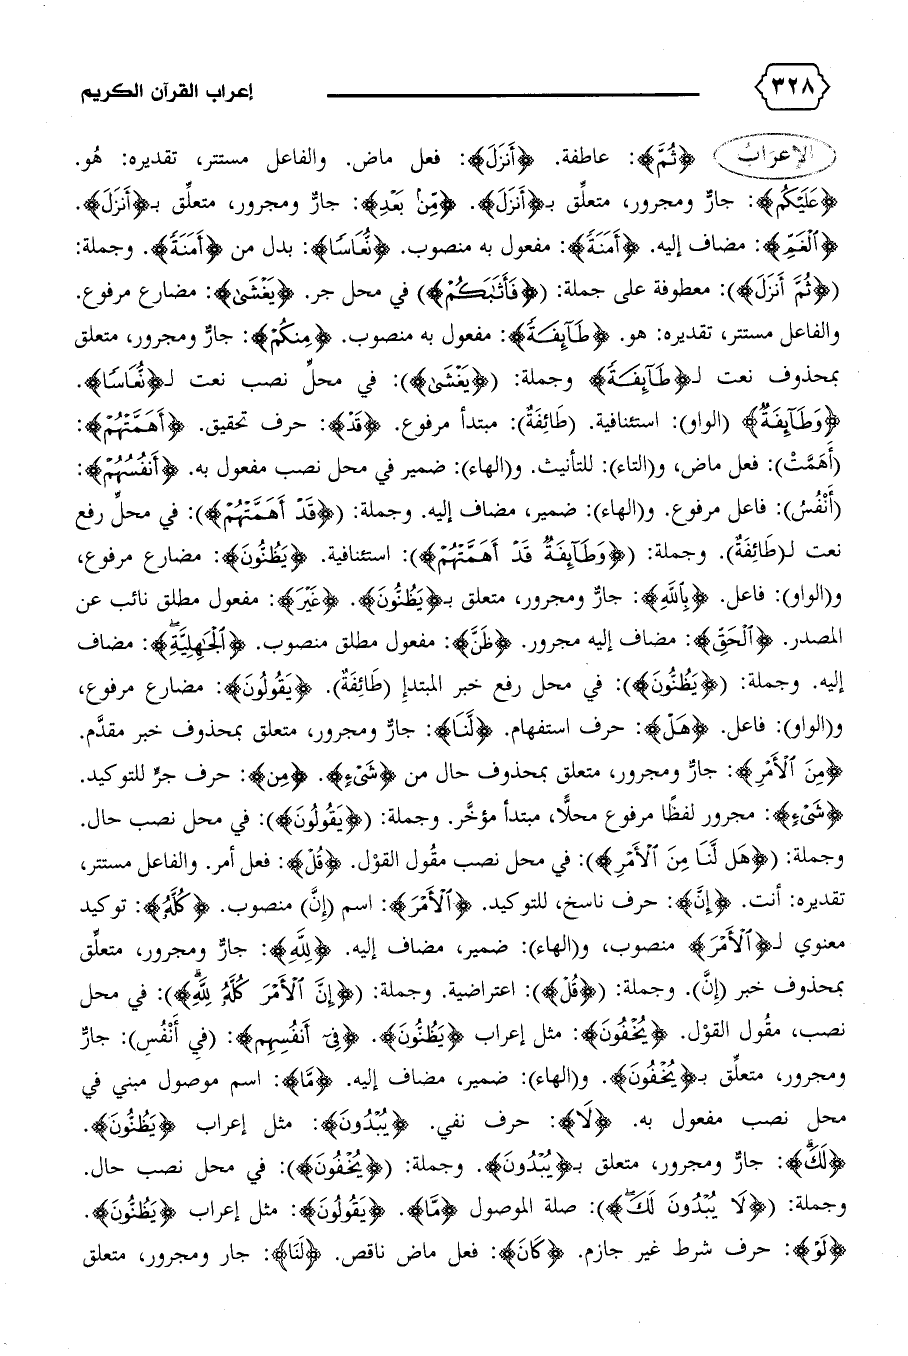 ٣٢٨
إعراب القرآن الكريم
الإعرَابُ ﴿ثُمَّ﴾: عاطفة. ﴿أَنزَلَ﴾: فعل ماض. والفاعل مستتر، تقديره: هُو.
﴿عَلَيْكُم﴾: جارٌّ ومجرور، متعلِّق بـ﴿أَنزَلَ﴾. ﴿مِّنۢ بَعْدِ﴾: جارٌّ ومجرور، متعلِّق بـ﴿أَنزَلَ﴾.
﴿ٱلْغَمِّ﴾: مضاف إليه. ﴿أَمَنَةً﴾: مفعول به منصوب. ﴿نُّعَاسًا﴾: بدل من ﴿أَمَنَةً﴾. وجملة:
(﴿ثُمَّ أَنزَلَ﴾): معطوفة على جملة: (﴿فَأَثَٰبَكُمْ﴾) في محل جر. ﴿يَغْشَىٰ﴾: مضارع مرفوع.
والفاعل مستتر، تقديره: هو. ﴿طَآئِفَةً﴾: مفعول به منصوب. ﴿مِنكُمْ﴾: جارٌّ ومجرور، متعلق
بمحذوف نعت لـ﴿طَآئِفَةً﴾ وجملة: (﴿يَغْشَىٰ﴾): في محلِّ نصب نعت لـ﴿نُّعَاسًا﴾.
﴿وَطَآئِفَةٌ﴾ (الواو): استئنافية. (طَائِفَةٌ): مبتدأ مرفوع. ﴿قَدْ﴾: حرف تحقيق. ﴿أَهَمَّتْهُمْ﴾:
(أَهَمَّتْ): فعل ماض، و(التاء): للتأنيث. و(الهاء): ضمير في محل نصب مفعول به. ﴿أَنفُسُهُمْ﴾:
(أَنْفُسُ): فاعل مرفوع. و(الهاء): ضمير، مضاف إليه. وجملة: (﴿قَدْ أَهَمَّتْهُمْ﴾): في محلِّ رفع
نعت لـ(طَائِفَةٌ). وجملة: (﴿وَطَآئِفَةٌ قَدْ أَهَمَّتْهُمْ﴾): استئنافية. ﴿يَظُنُّونَ﴾: مضارع مرفوع،
و(الواو): فاعل. ﴿بِٱللَّهِ﴾: جارٌّ ومجرور، متعلق بـ﴿يَظُنُّونَ﴾. ﴿غَيْرَ﴾: مفعول مطلق نائب عن
المصدر. ﴿ٱلْحَقِّ﴾: مضاف إليه مجرور. ﴿ظَنَّ﴾: مفعول مطلق منصوب. ﴿ٱلْجَٰهِلِيَّةِۖ﴾: مضاف
إليه. وجملة: (﴿يَظُنُّونَ﴾): في محل رفع خبر المبتدإِ (طَائِفَةٌ). ﴿يَقُولُونَ﴾: مضارع مرفوع،
و(الواو): فاعل. ﴿هَلْ﴾: حرف استفهام. ﴿لَّنَا﴾: جارٌّ ومجرور، متعلق بمحذوف خبر مقدَّم.
﴿مِنَ ٱلْأَمْرِ﴾: جارٌّ ومجرور، متعلق بمحذوف حال من ﴿شَىْءٍ﴾. ﴿مِن﴾: حرف جرٍّ للتوكيد.
﴿شَىْءٍ﴾: مجرور لفظًا مرفوع محلًّا، مبتدأ مؤخَّر. وجملة: (﴿يَقُولُونَ﴾): في محل نصب حال.
وجملة: (﴿هَل لَّنَا مِنَ ٱلْأَمْرِ﴾): في محل نصب مقُول القوْل. ﴿قُلْ﴾: فعل أمر. والفاعل مستتر،
تقديره: أنت. ﴿إِنَّ﴾: حرف ناسخ، للتوكيد. ﴿ٱلْأَمْرَ﴾: اسم (إنَّ) منصوب. ﴿كُلَّهُۥ﴾: توكيد
معنوي لـ﴿ٱلْأَمْرَ﴾ منصوب، و(الهاء): ضمير، مضاف إليه. ﴿لِلَّهِ﴾: جارٌّ ومجرور، متعلِّق
بمحذوف خبر (إنَّ). وجملة: (﴿قُلْ﴾): اعتراضية. وجملة: (﴿إِنَّ ٱلْأَمْرَ كُلَّهُۥ لِلَّهِۗ﴾): في محل
نصب، مقُول القوْل. ﴿يُخْفُونَ﴾: مثل إعراب ﴿يَظُنُّونَ﴾. ﴿فِىٓ أَنفُسِهِم﴾: (في أَنْفُسِ): جارٌّ
ومجرور، متعلِّق بـ﴿يُخْفُونَ﴾. و(الهاء): ضمير، مضاف إليه. ﴿مَّا﴾: اسم موصول مبني في
محل نصب مفعول به. ﴿لَا﴾: حرف نفي. ﴿يُبْدُونَ﴾: مثل إعراب ﴿يَظُنُّونَ﴾.
﴿لَكَۖ﴾: جارٌّ ومجرور، متعلق بـ﴿يُبْدُونَ﴾. وجملة: (﴿يُخْفُونَ﴾): في محل نصب حال.
وجملة: (﴿لَا يُبْدُونَ لَكَۖ﴾): صلة الموصول ﴿مَّا﴾. ﴿يَقُولُونَ﴾: مثل إعراب ﴿يَظُنُّونَ﴾.
﴿لَوْ﴾: حرف شرط غير جازم. ﴿كَانَ﴾: فعل ماض ناقص. ﴿لَنَا﴾: جار ومجرور، متعلق